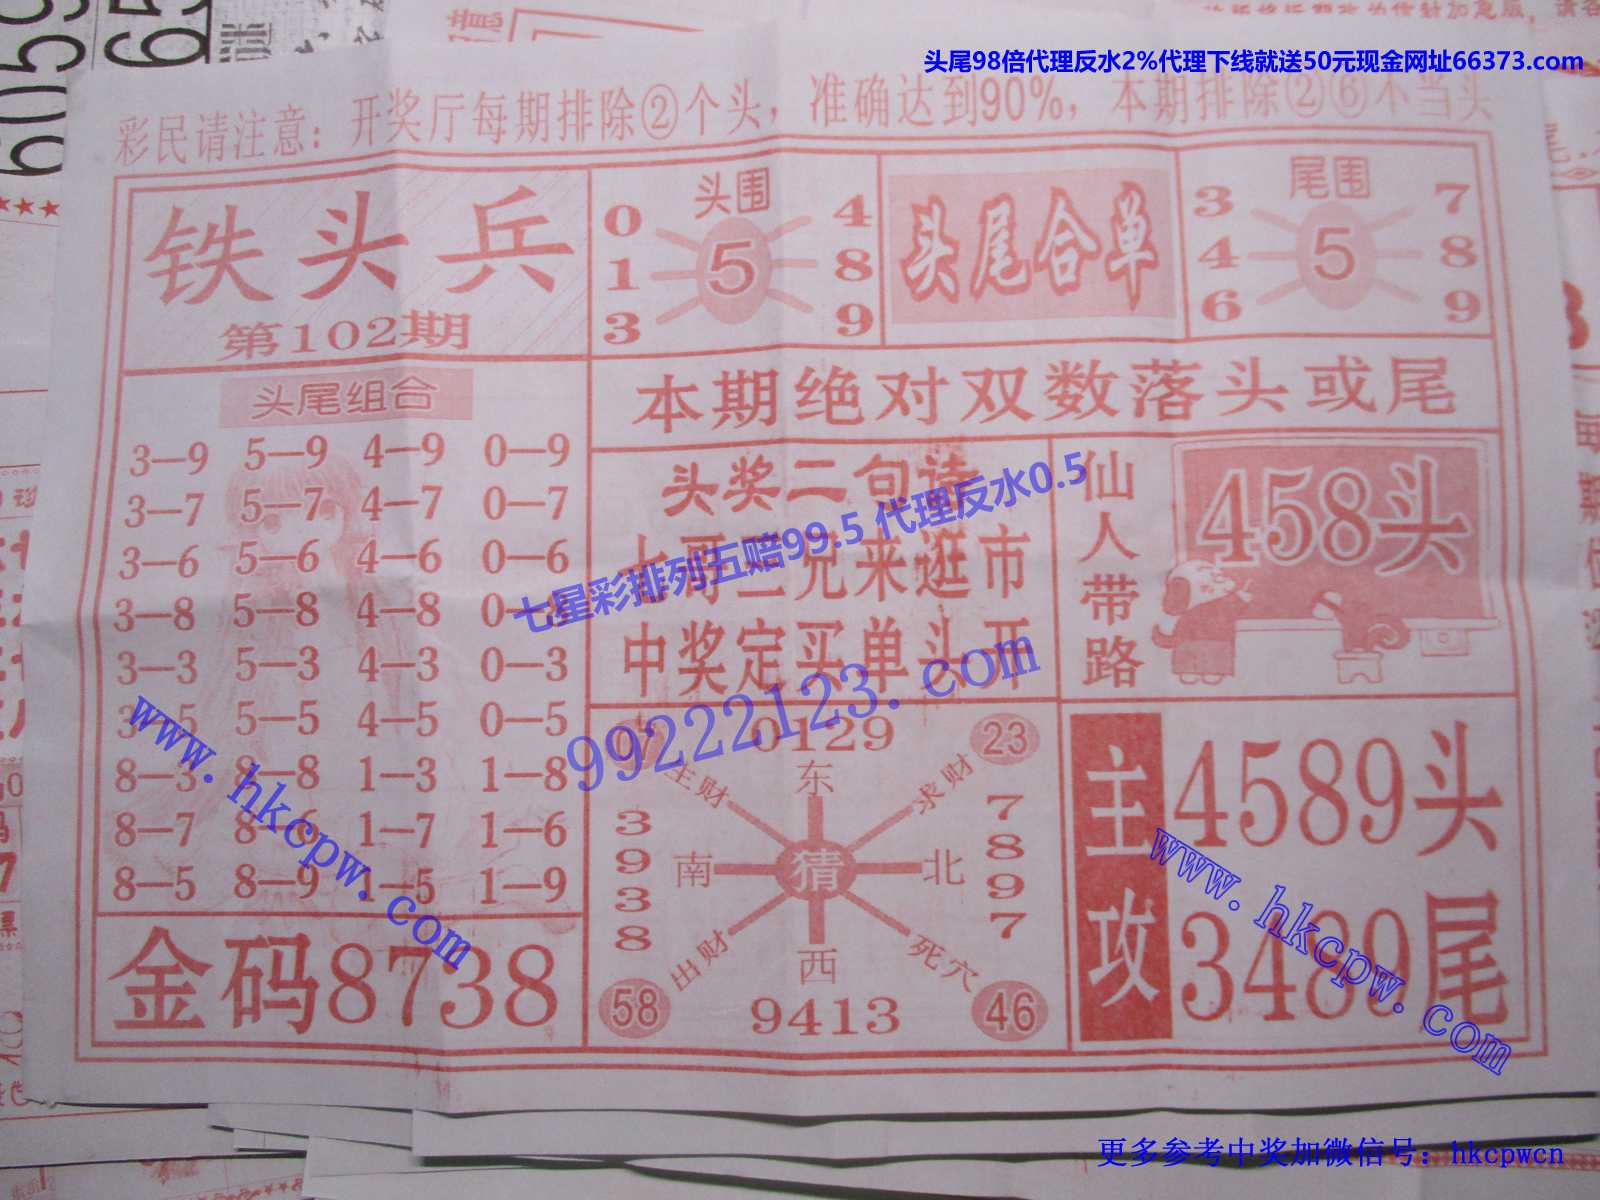 头尾98倍代理反水2%代理下线就送50元现金网址66373.com
彩民请注意：开奖厅每期排除②个头，准确达到90%，本期排除②⑥不当头
铁头兵
第102期
头围
0 4
1 5 8
3 9
头尾合单
尾围
3 7
4 5 8
6 9
本期绝对双数落头或尾
头尾组合
3—9 5—9 4—9 0—9
3—7 5—7 4—7 0—7
3—6 5—6 4—6 0—6
3—8 5—8 4—8 0—8
3—3 5—3 4—3 0—3
3—5 5—5 4—5 0—5
8—3 8—8 1—3 1—8
8—7 8—6 1—7 1—6
8—5 8—9 1—5 1—9
金码8738
头奖二句诗
七哥二兄来逛市
中奖定买单头开
七星彩排列五赔99.5 代理反水0.5
99222123.com
仙人带路
458头
0129
23
主财
东
求财
3938
南
猜
北
7897
出财
西
死穴
58
9413
46
主攻
4589头
3489尾
www.hkcpw.com
www.hkcpw.com
更多参考中奖加微信号：hkcpwcn